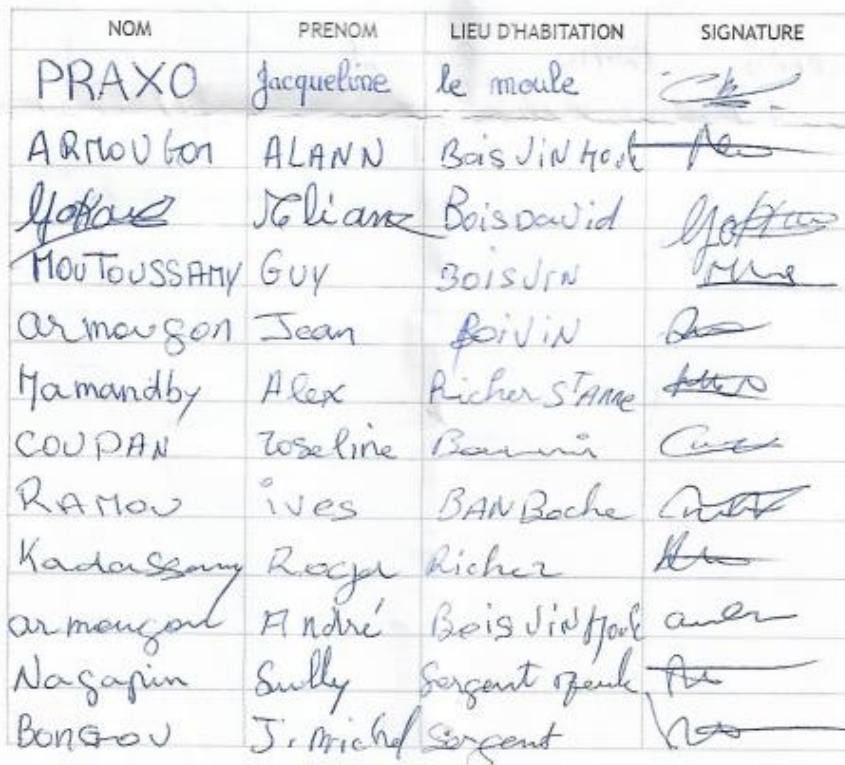 NOM PRENOM LIEU D'HABITATION SIGNATURE
PRAXO Jacqueline le moule
ARMOUGON ALANN Bois JIN
BoisDavid
MOUTOUSSAMY GUY BOISJIN
armougon Jean BOIVIN
Mamandby Alex Richer ST ANNE
COUPAN roseline
RAMOU ives BANBoche
Kadassamy Roger Richer
armougon André Bois JiN
Nagapin Sully Sergent
BONGOU J. Michel Sergent